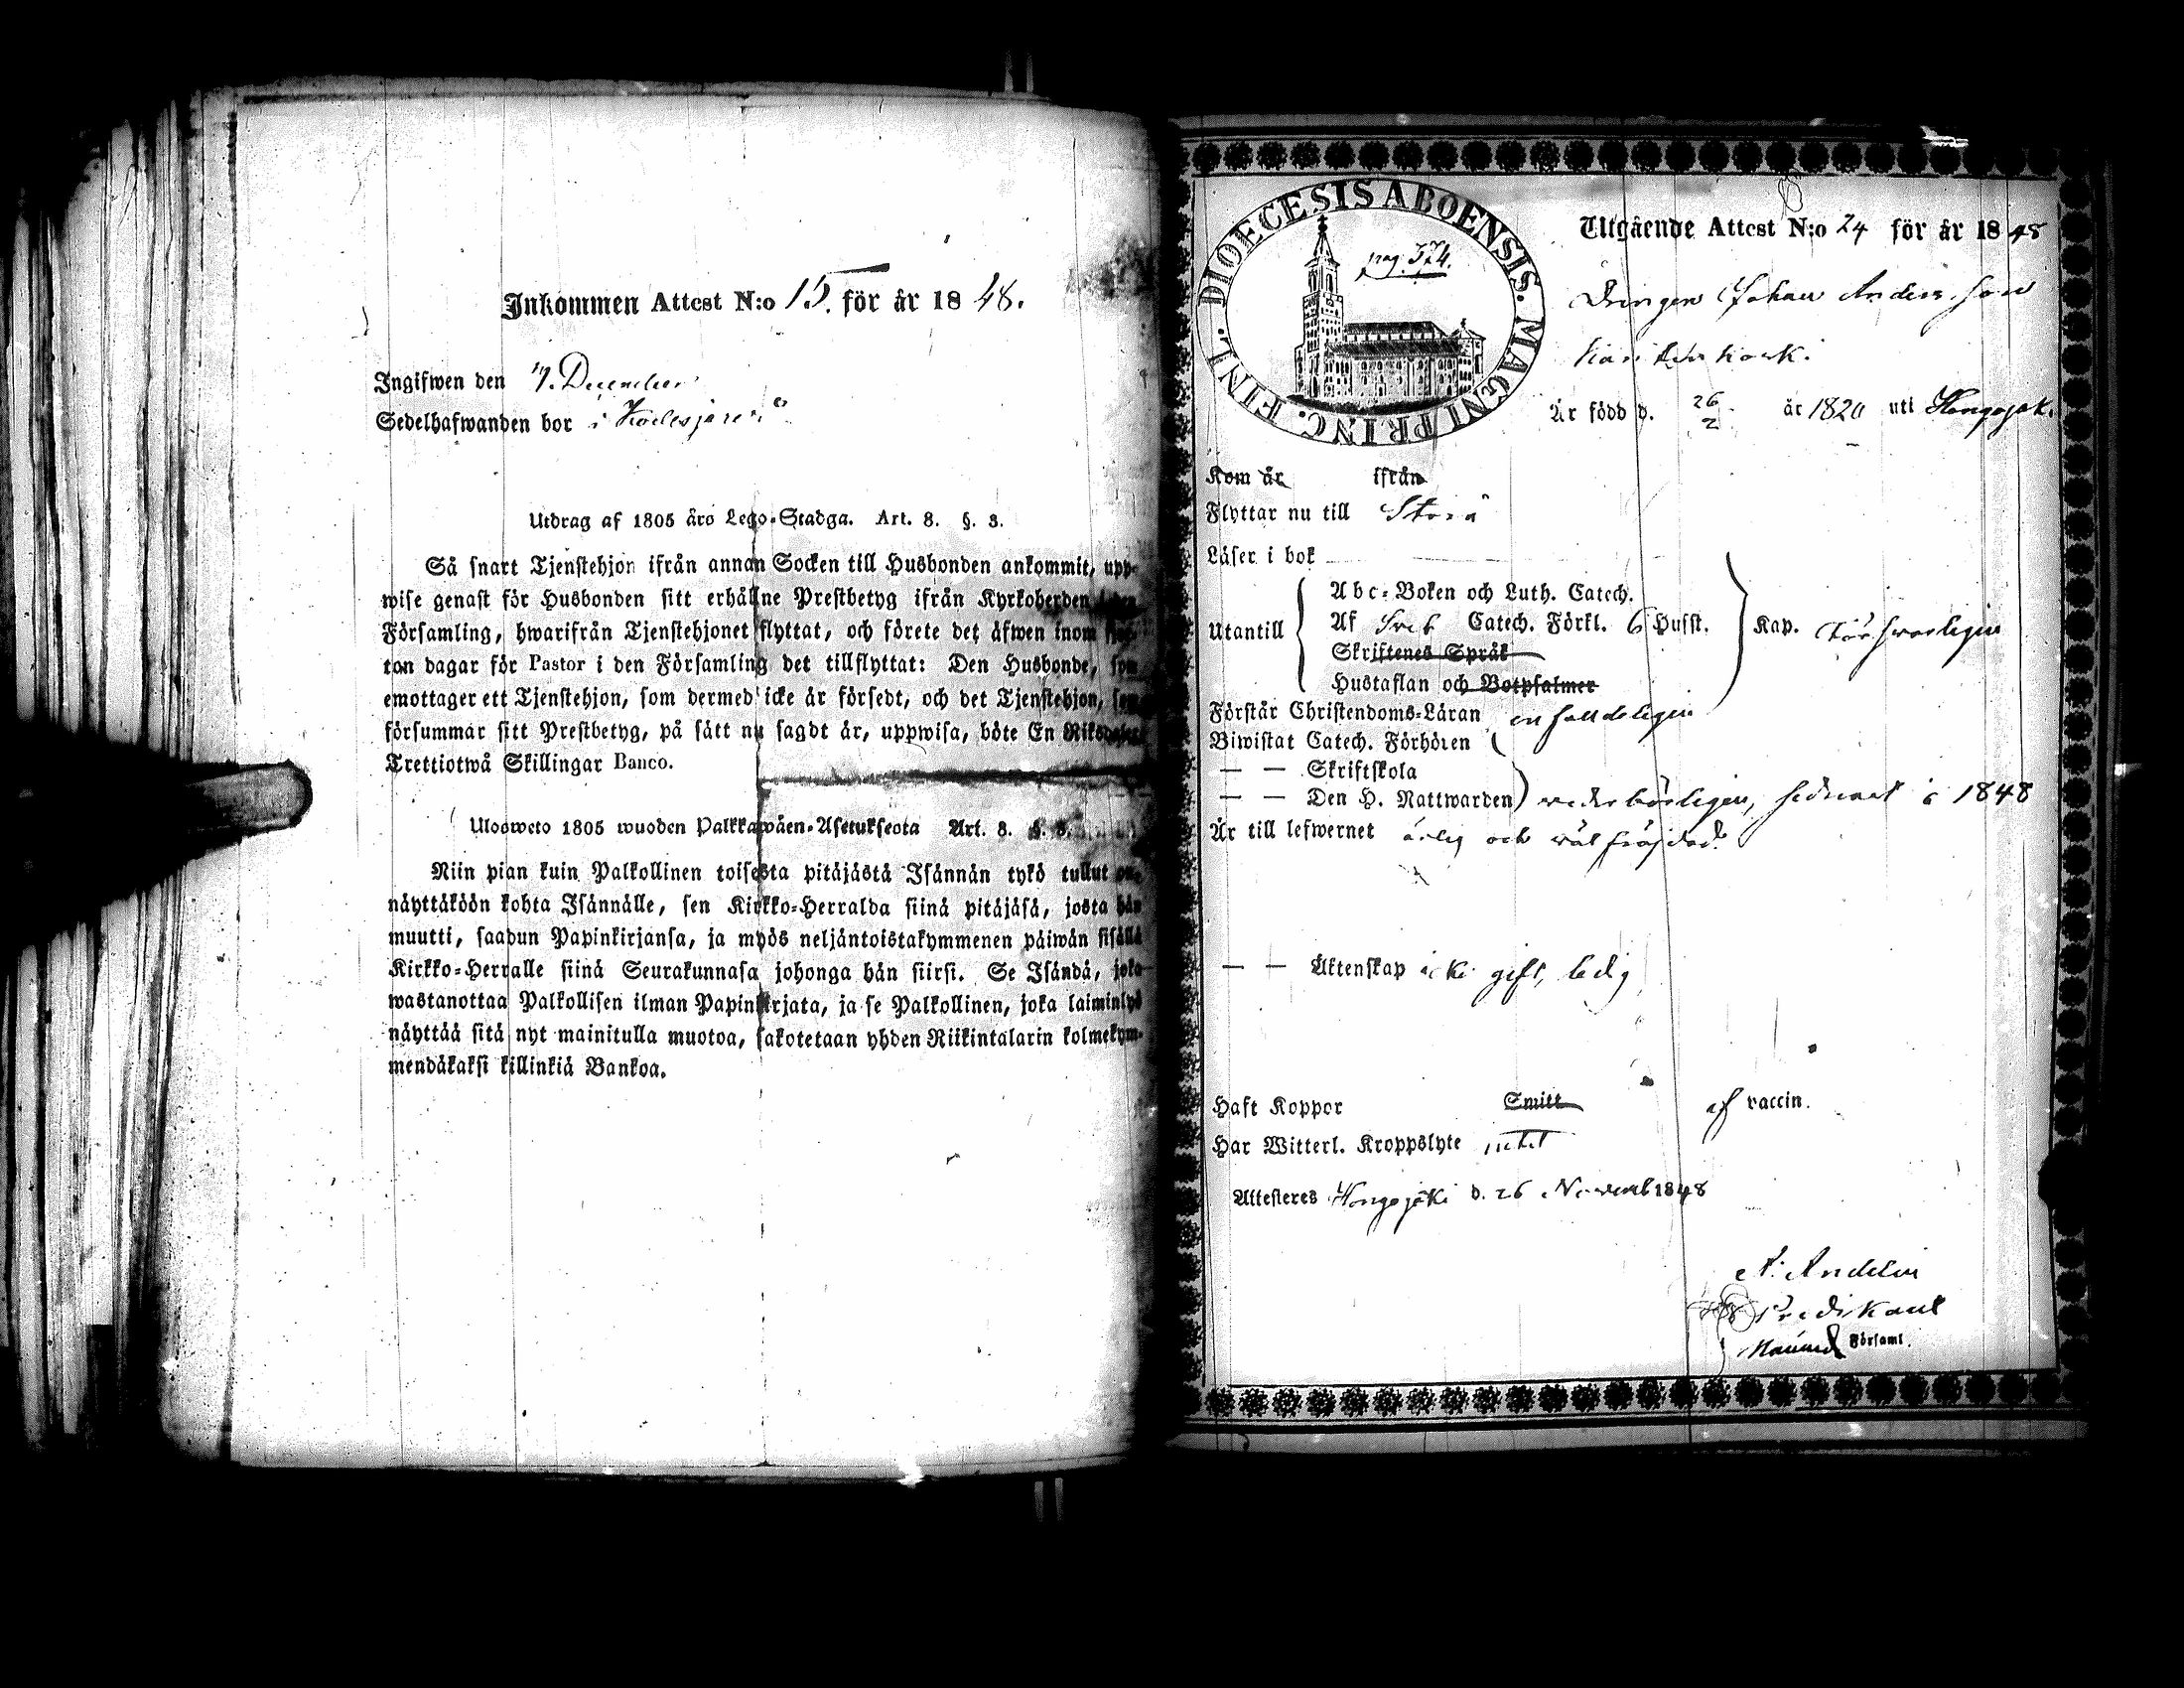 Inkommen Attest N:o 15. för år 18 48.
Ingifwen den 7. December
Sedelhafwanden bor i
Utdrag af 1805 års Lego-Stadga. Art. 8. §. 3.
Så snart Tjenstehjon ifrån annan Socken till Husbonden ankommit, upp-
wise genast för Husbonden sitt erhållne Prestbetyg ifrån Kyrkoherden
Församling, hwarifrån Tjenstehjonet flyttat, och förete det äfwen inom
ton dagar för Pastor i den Församling det tillflyttat: Den Husbonde, som
emottager ett Tjenstehjon, som dermed icke är försedt, och det Tjenstehjon, som
försummar sitt Prestbetyg, på sätt nu sagdt är, uppwisa, böte En Riksdaler
Trettiotwå Skillingar Banco.
Ulosweto 1805 wuoden Palkkawäen-Asetuksesta Art. 8. §. 3.
Niin pian kuin Palkollinen toisesta pitäjästä Isännän tykö tullut on,
näyttäköön kohta Isännälle, sen Kirkko-Herralda siinä pitäjäsä, josta hän
muutti, saadun Papinkirjansa, ja myös neljäntoistakymmenen päiwän sisällä
Kirkko-Herralle siinä Seurakunnasa johonga hän siirsi. Se Isändä, joka
wastanottaa Palkollisen ilman Papinkirjata, ja se Palkollinen, joka laiminlyö
näyttää sitä nyt mainitulla muotoa, sakotetaan yhden Riikintalarin kolmekym-
mendäkaksi killinkiä Bankoa.
DIOECESIS ABOENSIS. MAGNI PRINC. FINL.
pag. 374.
Utgående Attest N:o 24 för år 18 48
Drängen Johan Andersson
Är född d. 26/2 år 1820 uti Hongojok.
Kom år ifrån
Flyttar nu till Storå
Läser i bok
Utantill
Abc-Boken och Luth. Catech.
Af Sveb Catech. Förkl. 6 Hufst. Kap. försvarligen
Skriftenes Språk
Hustaflan och Botpsalmer
Förstår Christendoms-Läran enfalldeligen
Biwistat Catech. Förhören
— — Skriftskola
— — Den H. Nattwarden wederbörligen, sednast i 1848
Är till lefwernet ärlig och wälfräjdad.
— — Äktenskap icke gift, ledig
Haft Koppor Smitt af vaccin.
Har Witterl. Kroppslyte intet
Attesteres Hongojoki d. 26 Novemb 1848
N. Andelin
Predikant
Församl.